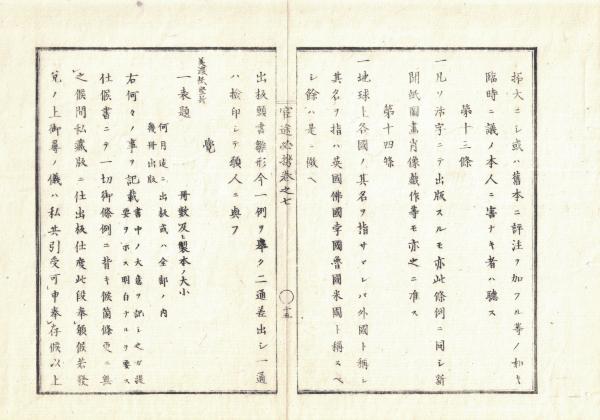 拡大ニシ或ハ舊本ニ評注ヲ加フル等ノ如キ
臨時ニ議ノ本人ニ害ナキ者ハ聴ス
第十三條
一凡ソ活字ニテ出版スルモ亦此條例ニ同シ新
聞紙圖畫肖像戯作等モ亦之ニ准ス
第十四條
一地球上各國ノ其名ヲ指サマレバ外國ト稱シ
其名ヲ指ハ英國佛國孛國魯國米國ト稱スベ
シ餘ハ是ニ倣ヘ
官途必携巻之七
十五
出板願書雛形今一例ヲ舉ク二通差出シ一通
ハ檢印シテ願人ニ與フ
美濃紙竪折
覺
一表題
冊數及ヒ製本ノ大小
何月迄ニ出板或ハ全部ノ内
幾冊出版
右何々ノ事ヲ記載
書中ノ大意ヲ記シ之ガ提
要ヲホス明白ナルヲ要ス
仕候書ニテ一切御條例ニ背キ候箇條更ニ無
之候間私藏版ニ仕出板仕度此段奉願候若發
兌ノ上御尋ノ儀ハ私共引受可申奉存候以上